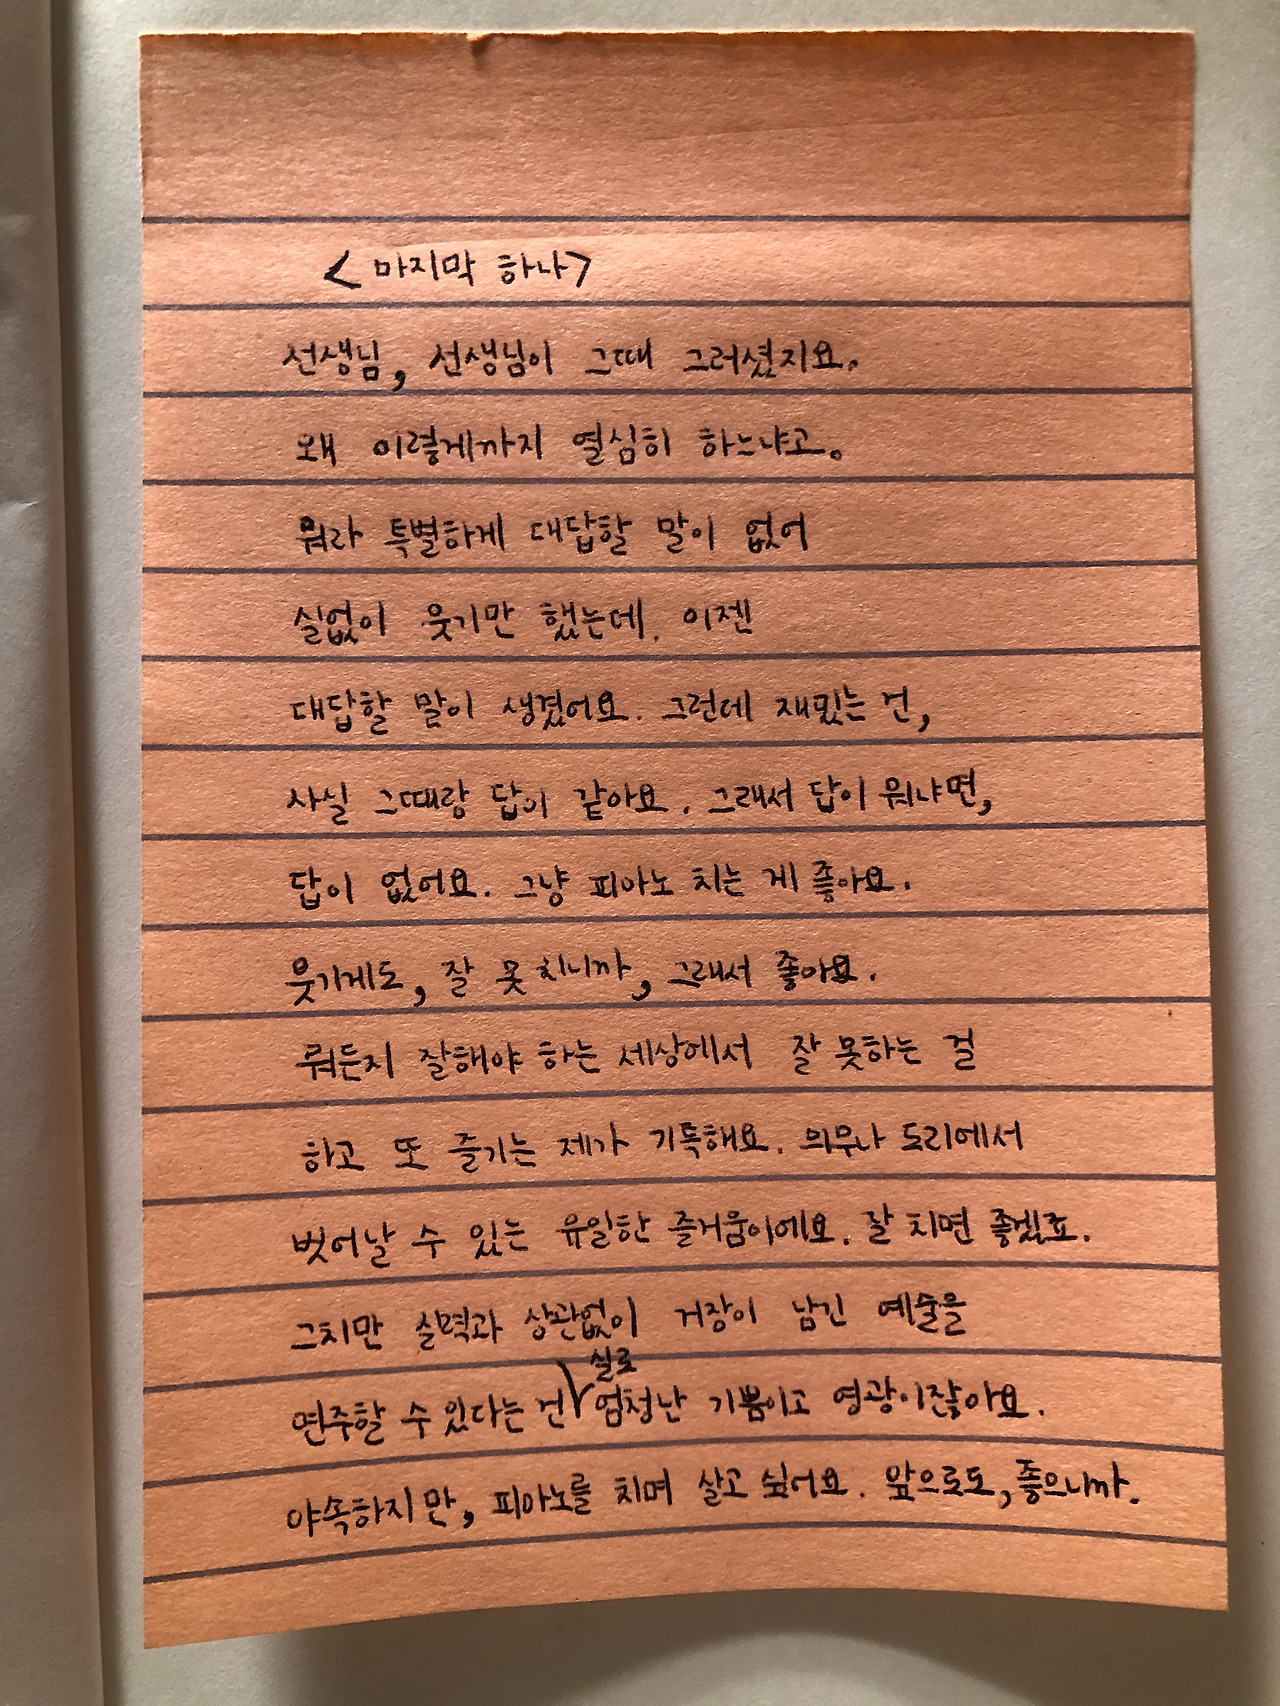 <마지막 하나>
선생님, 선생님이 그때 그러셨지요.
왜 이렇게까지 열심히 하느냐고.
뭐라 특별하게 대답할 말이 없어
실없이 웃기만 했는데. 이젠
대답할 말이 생겼어요. 그런데 재밌는 건,
사실 그때랑 답이 같아요. 그래서 답이 뭐냐면,
답이 없어요. 그냥 피아노 치는 게 좋아요.
웃기게도, 잘 못 치니까, 그래서 좋아요.
뭐든지 잘해야 하는 세상에서 잘 못하는 걸
하고 또 즐기는 제가 기특해요. 의무나 도리에서
벗어날 수 있는 유일한 즐거움이에요. 잘 치면 좋겠죠.
그치만 실력과 상관없이 거장이 남긴 예술을
연주할 수 있다는 건 실로 엄청난 기쁨이고 영광이잖아요.
야속하지만, 피아노를 치며 살고 싶어요. 앞으로도, 좋으니까.